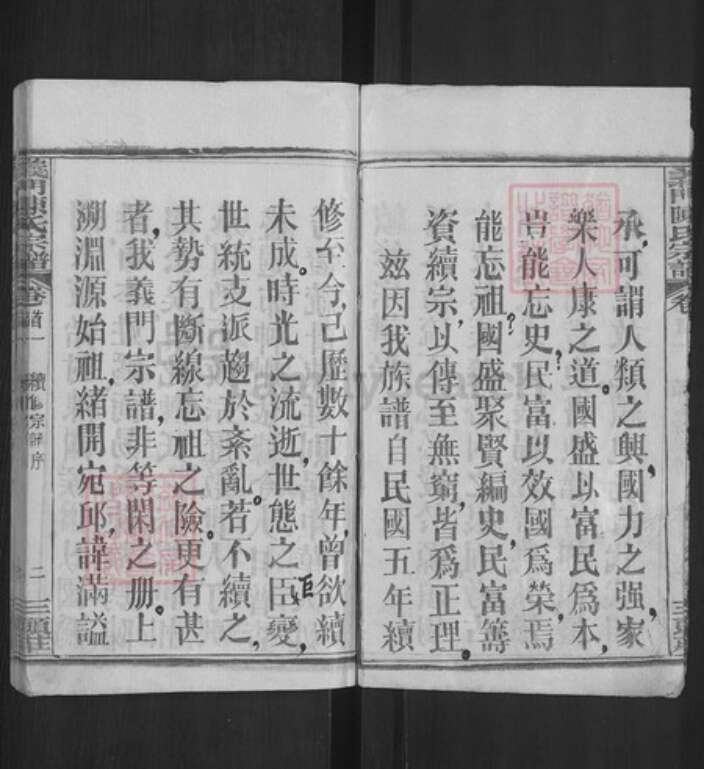 承,可謂人類之興,國力之强,家
樂人康之道。國盛以富民爲本,
豈能忘史?民富以效國爲榮,焉
能忘祖?國盛聚賢編史,民富籌
資續宗,以傳至無窮,皆爲正理。
兹因我族譜自民國五年續
修至今,已歷數十餘年,曾欲續
未成。時光之流逝,世態之臣變,
巨
世統支派趨於紊亂。若不續之,
其勢有斷線忘祖之險。更有甚
者,我義門宗譜,非等閑之册。上
溯淵源始祖,緒開宛邱,諱滿謚
義門陳氏宗譜
卷首一
續修宗譜序
二
義門陳氏宗譜
卷